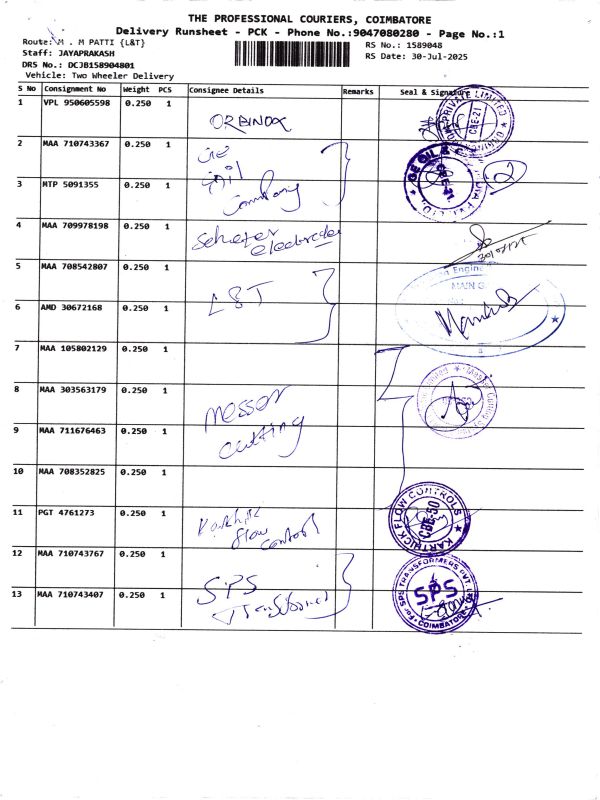 THE PROFESSIONAL COURIERS, COIMBATORE
Delivery Runsheet - PCK - Phone No.:9047080280 - Page No.:1
Route: M . M PATTI {L&T}
RS No.: 1589048
Staff: JAYAPRAKASH
RS Date: 30-Jul-2025
DRS No.: DCJB158904801
Vehicle: Two Wheeler Delivery
S No Consignment No Weight PCS Consignee Details Remarks Seal & Signature
1 VPL 950605598 0.250 1
ORBINOX
PRIVATE LIMITED
CBE-21
2 MAA 710743367 0.250 1
GE
oil
company
GE OIL &
CBE-21
2
3 MTP 5091355 0.250 1
4 MAA 709978198 0.250 1
electrodes
5 MAA 708542807 0.250 1
L&T
MAIN G
6 AMD 30672168 0.250 1
7 MAA 105802129 0.250 1
8 MAA 303563179 0.250 1
Messer
Cutting
9 MAA 711676463 0.250 1
10 MAA 708352825 0.250 1
11 PGT 4761273 0.250 1
Karthick
flow
control
KARTHICK FLOW CONTROLS
CBE-50
12 MAA 710743767 0.250 1
SPS
Transformer
For SPS TRANSFORMERS PVT. LTD
SPS
COIMBATORE
13 MAA 710743407 0.250 1